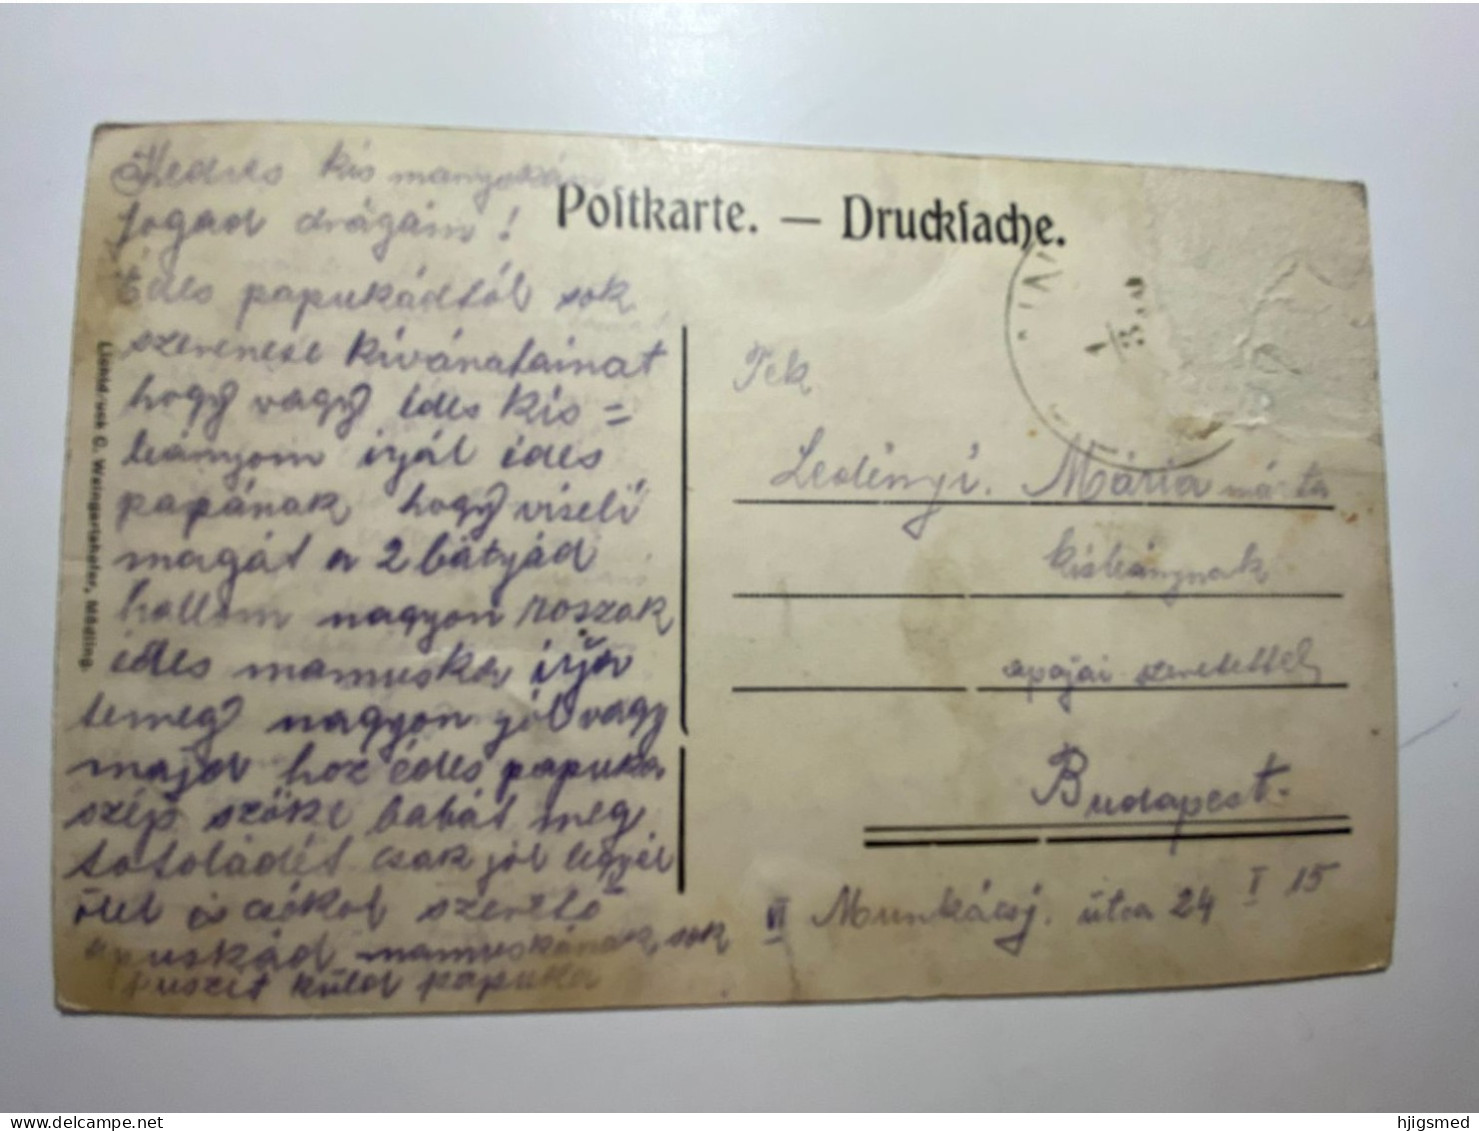 Kedves kis manyokám
fogad drágám!
Édes papukádtól sok
szerencse kívánatainat
hogy vagy édes kis=
leányom irjál édes
papának hogy viseli
magát a 2 bátyád
hallom nagyon roszak
édes mamuska irja
temeg nagyon jól vagy
majd hoz édes papuka
szép szőke babát meg
totoládét csak jól legyél
ölel és csókol szerető
apuskád mamuskának sok
puszit küld papuka
Postkarte. — Drucksache.
Lichtdruck C. Weingartshofer, Mödling.
Tek
Ledényi. Mária márta
kisleánynak
apajai szeretettel
Budapest.
VI Munkácsy. útca 24 I 15
hjigsmed